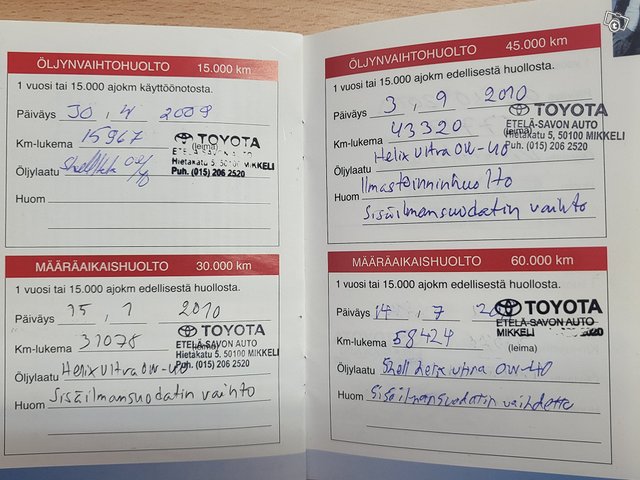 ÖLJYNVAIHTOHUOLTO 15.000 km
1 vuosi tai 15.000 ajokm käyttöönotosta.
Päiväys 30 . 4 2009
Km-lukema 15967
(leima)
TOYOTA
Hietakatu 5, 50100 MIKKELI
Puh. (015) 206 2520
Öljylaatu Shell
Huom
MÄÄRÄAIKAISHUOLTO 30.000 km
1 vuosi tai 15.000 ajokm edellisestä huollosta.
Päiväys 15 . 1 2010
Km-lukema 31078
TOYOTA
ETELÄ-SAVON AUTO
Hietakatu 5, 50100 MIKKELI
Puh. (015) 206 2520
Öljylaatu Helix Ultra 0W-40
Huom Sisäilmansuodatin vaihto
ÖLJYNVAIHTOHUOLTO 45.000 km
1 vuosi tai 15.000 ajokm edellisestä huollosta.
Päiväys 3 . 9 2010
Km-lukema 43320
(leima)
TOYOTA
ETELÄ-SAVON AUTO
Hietakatu 5, 50100 MIKKELI
Puh. (015) 206 2520
Öljylaatu Helix Ultra 0W-40
Huom Ilmastoinninhuolto
Sisäilmansuodatin vaihto
MÄÄRÄAIKAISHUOLTO 60.000 km
1 vuosi tai 15.000 ajokm edellisestä huollosta.
Päiväys 14 . 7
Km-lukema 58424
TOYOTA
ETELÄ-SAVON AUTO
MIKKELI
(leima)
Öljylaatu Shell helix ultra 0W-40
Huom Sisäilmansuodatin vaihdettu